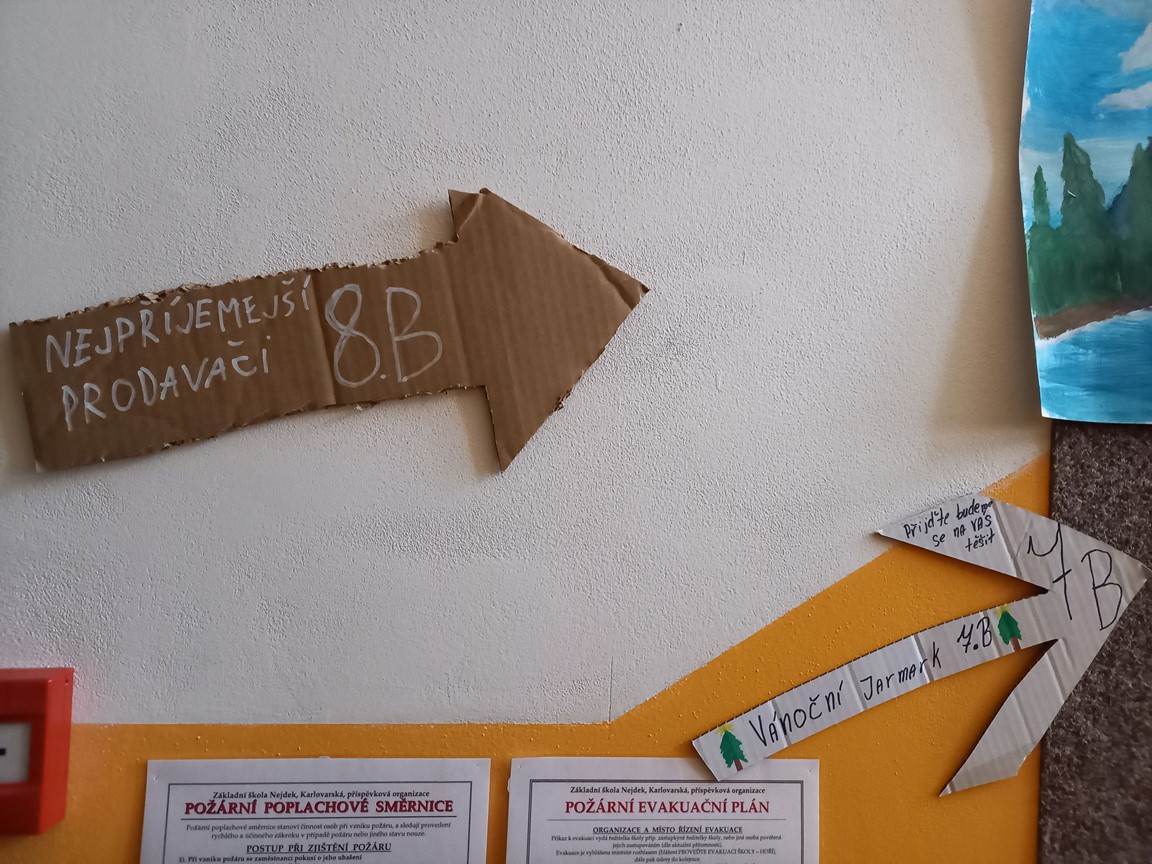 NEJPŘÍJEMEJŠÍ
PRODAVAČI
8.B
Přijďte budeme
se na VÁS
těšit
7 B
Vánoční Jarmark 7.B
Základní škola Nejdek, Karlovarská, příspěvková organizace
POŽÁRNÍ POPLACHOVÉ SMĚRNICE
Požární poplachové směrnice stanoví činnost osob při vzniku požáru, a sledují provedení
rychlého a účinného zákroku v případě požáru nebo jiného stavu nouze.
POSTUP PŘI ZJIŠTĚNÍ POŽÁRU
1) Při vzniku požáru se zaměstnanci pokusí o jeho uhašení
Základní škola Nejdek, Karlovarská, příspěvková organizace
POŽÁRNÍ EVAKUAČNÍ PLÁN
ORGANIZACE A MÍSTO ŘÍZENÍ EVAKUACE
Příkaz k evakuaci vydá ředitelka školy příp. zástupkyně ředitelky školy, nebo jiná osoba pověřená
jejich zastupováním (dle aktuální přítomnosti).
Evakuace je vyhlášena místním rozhlasem (hlášení PROVEĎTE EVAKUACI ŠKOLY – HOŘÍ,
dále pak údery do kolejnice.